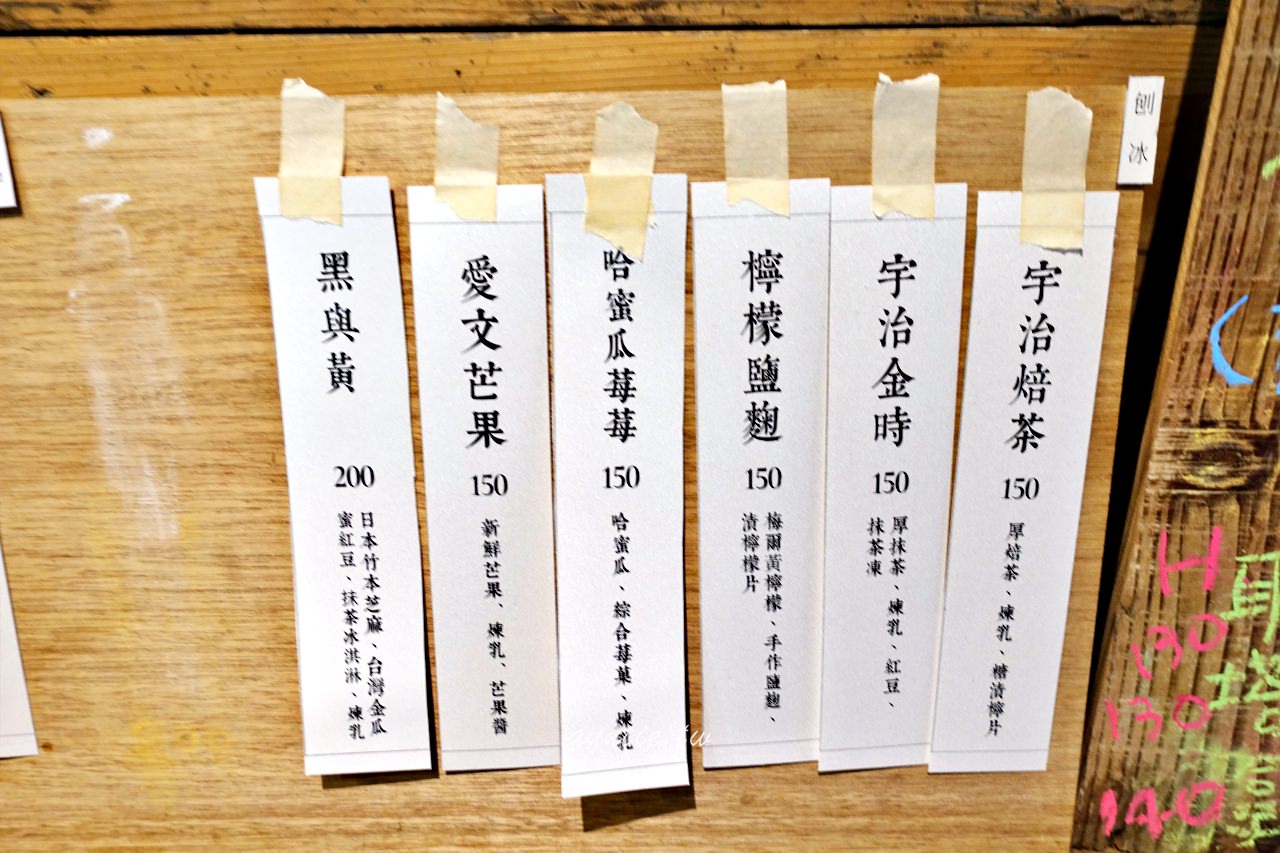 刨冰
宇治焙茶
150
厚焙茶、煉乳、糖漬檸片
宇治金時
150
厚抹茶、煉乳、紅豆、
抹茶凍
檸檬鹽麴
150
梅爾黃檸檬、手作鹽麴、
漬檸檬片
哈蜜瓜莓莓
150
哈蜜瓜、綜合莓菓、煉乳
愛文芒果
150
新鮮芒果、煉乳、芒果醬
黑與黃
200
日本竹本芝麻、台灣金瓜
蜜紅豆、抹茶冰淇淋、煉乳
H
130
130
140